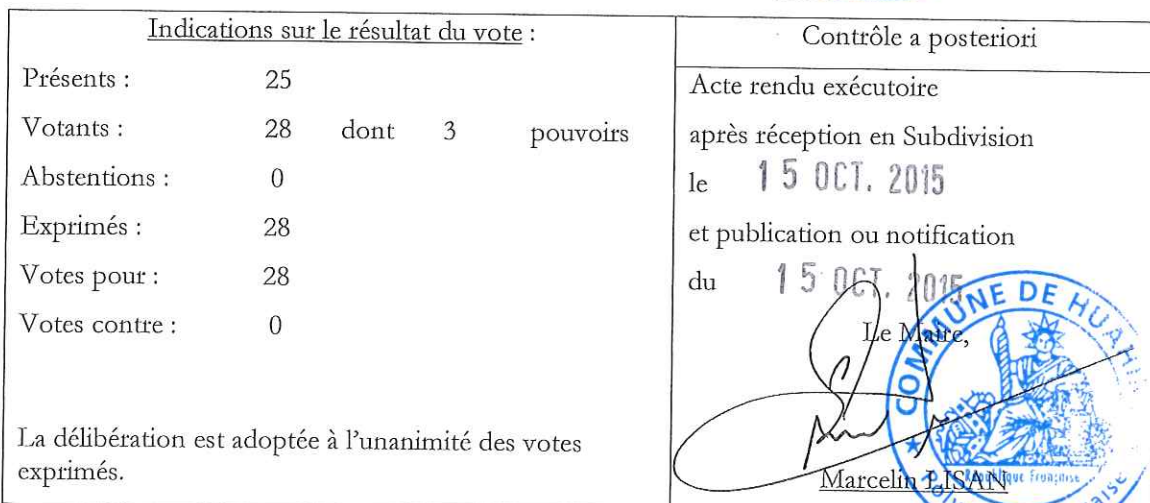 Indications sur le résultat du vote :
Présents : 25
Votants : 28 dont 3 pouvoirs
Abstentions : 0
Exprimés : 28
Votes pour : 28
Votes contre : 0
La délibération est adoptée à l'unanimité des votes
exprimés.
Contrôle a posteriori
Acte rendu exécutoire
après réception en Subdivision
le 15 OCT. 2015
et publication ou notification
du 15 OCT. 2015
Le Maire,
Marcelin LISAN
COMMUNE DE HUAHI
République Française